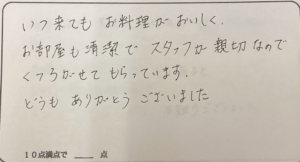 いつ来ても お料理が おいしく、
お部屋も 清潔で スタッフが 親切なので
くつろがせて もらっています。
どうも ありがとう ございました
10点満点で ___ 点